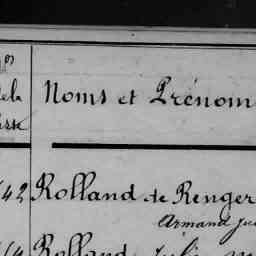 Noms et Prénom
42 Rolland de Renger
Armand Ju
Rolland Juli